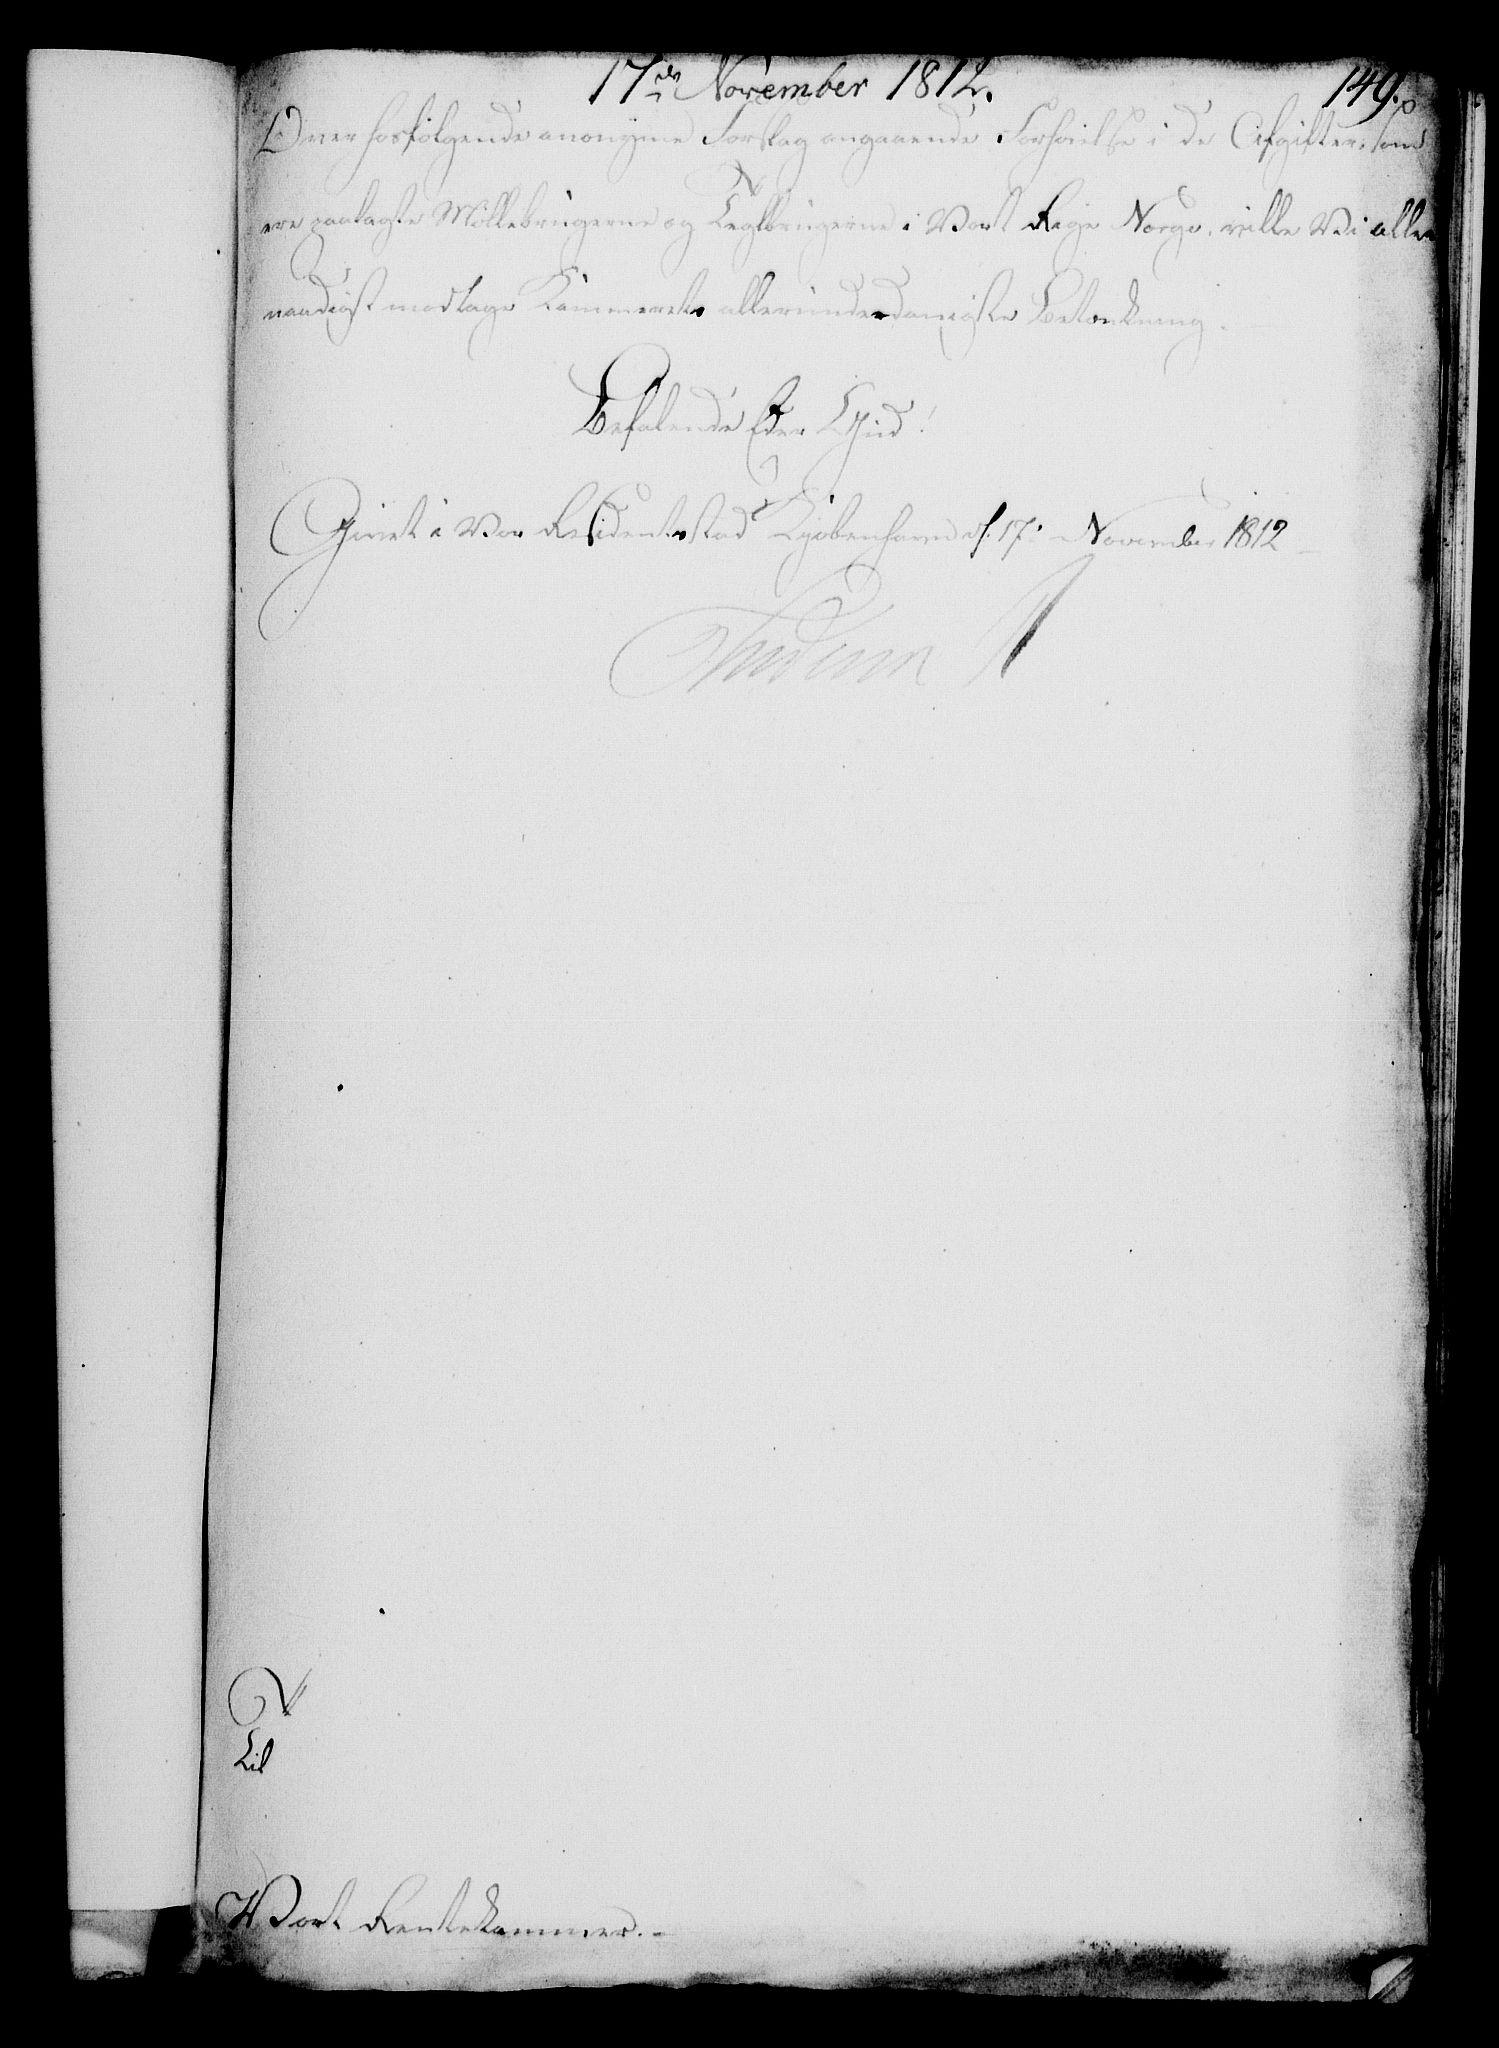 17de November 1812.
149.
Over hosfølgende anonyme Forslag angaaende Forhøielse i de Afgifter, som
ere paalagte Møllebrugerne og Teglbrugerne i Vort Rige Norge, ville Vi aller
naadigst modtage Kammerets allerunderdanigste Betænkning.
Befalende Eder Gud!
Givet i Vor Residentsstad Kjøbenhavn d. 17. November 1812
Frederik R
Til
Vort Rentekammer.